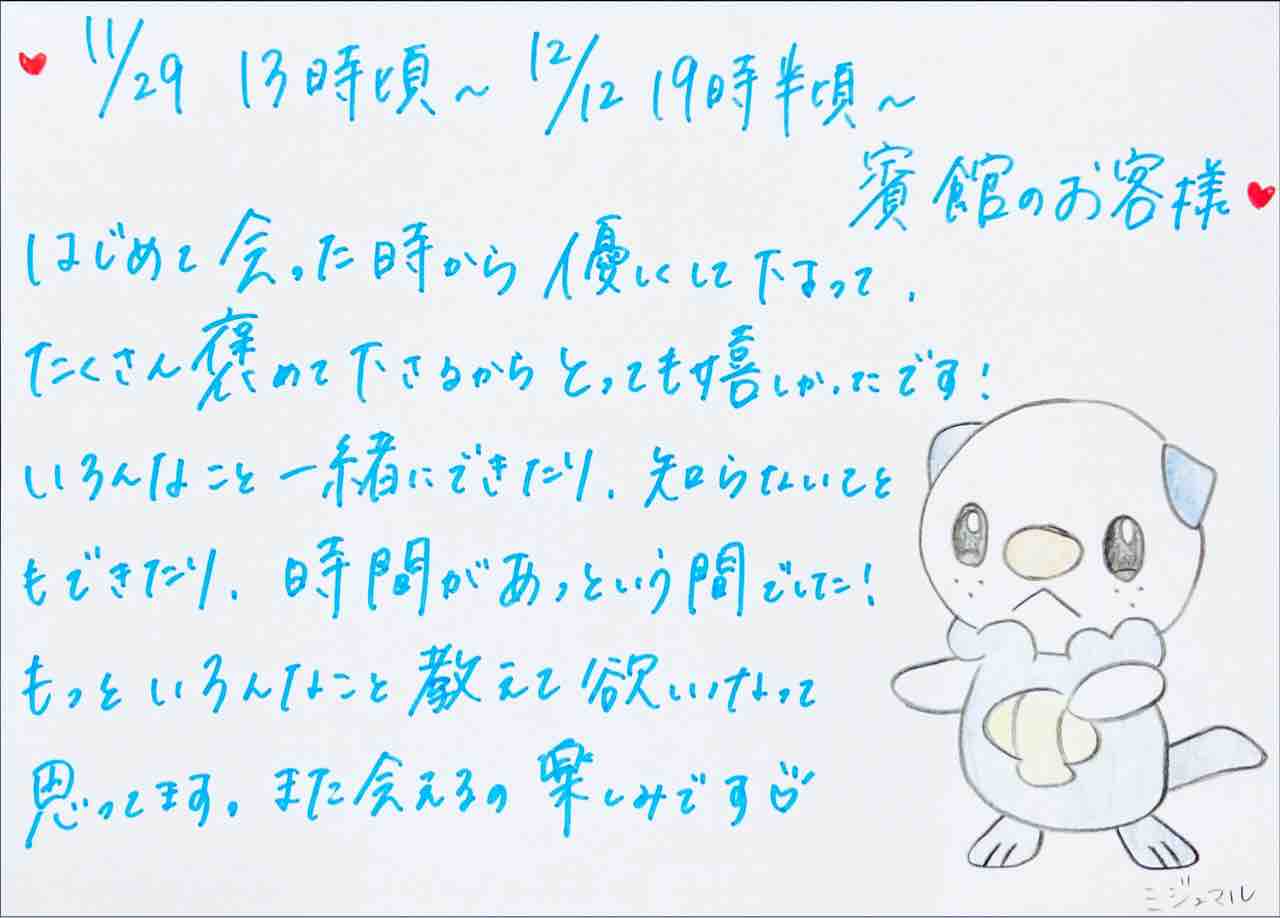 11/29 13時頃~ 12/12 19時半頃~
賓館のお客様
はじめて会った時から優しくして下さって、
たくさん褒めて下さるからとっても嬉しかったです!
いろんなこと一緒にできたり、知らないこと
もできたり、時間があっという間でした!
もっといろんなこと教えて欲しいなって
思ってます。また会えるの楽しみです
ミジュマル